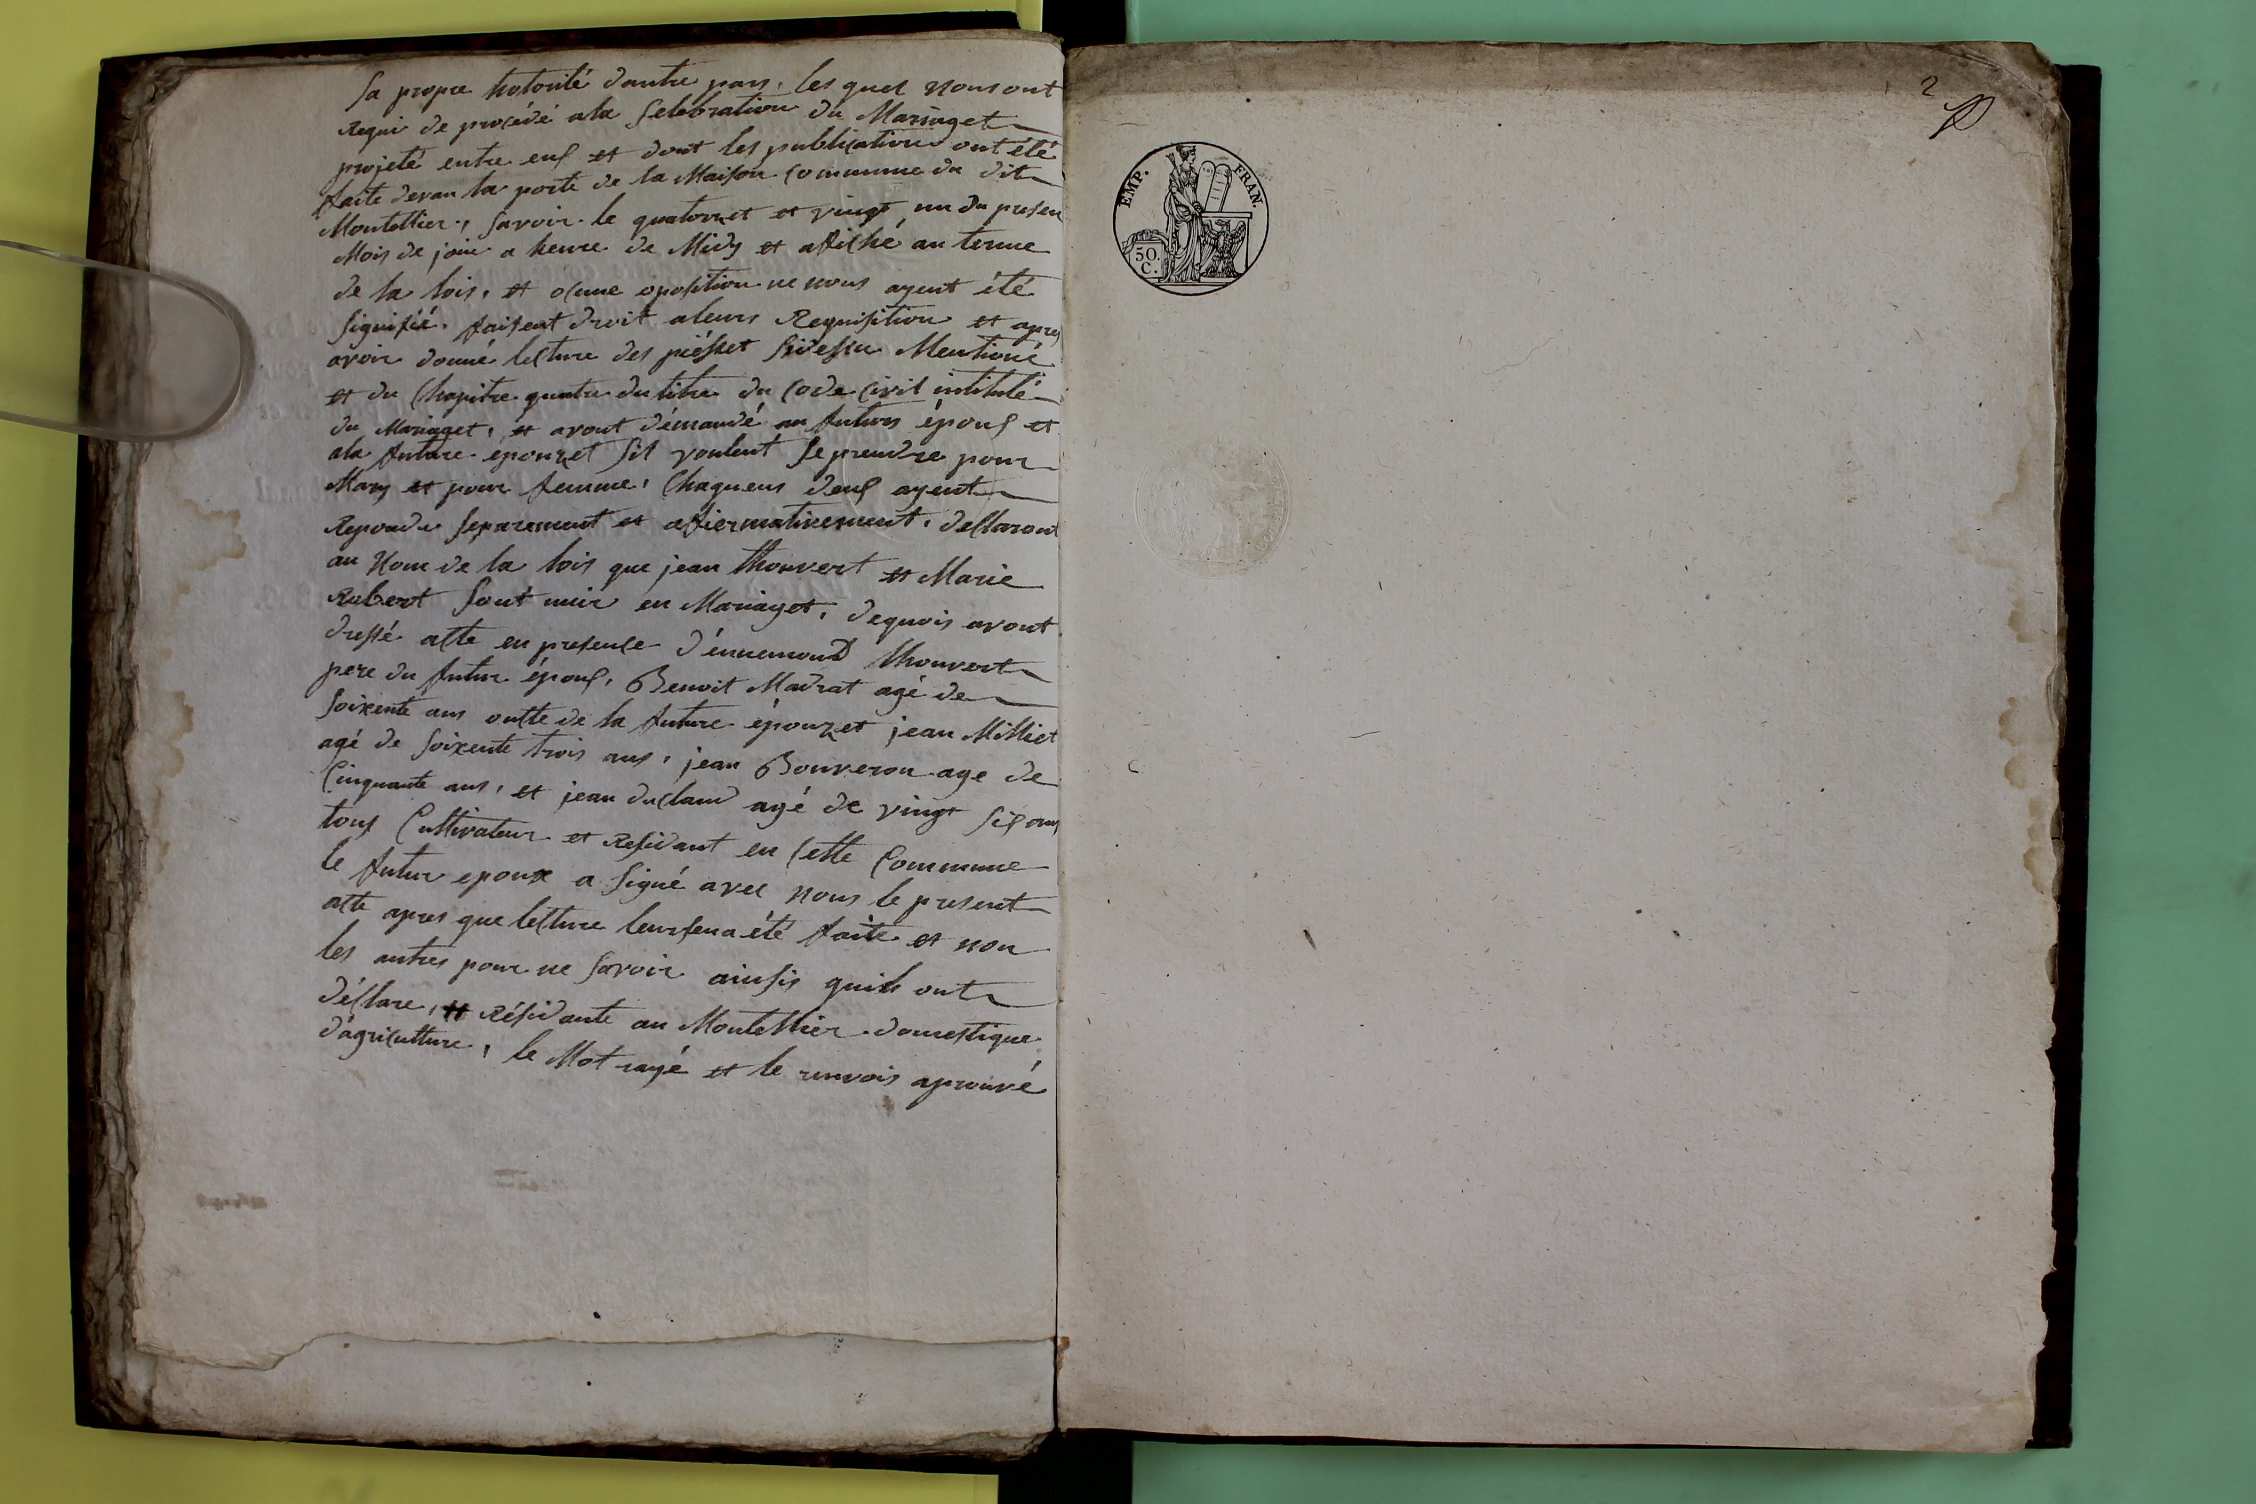 Sa propre hotorité dautre pars, les quel nous ont
Requi de procédé ala Selebration du Mariaget
projeté entre eus et dont les publication ont été
faite devan la porte de la Maison Commune du dit
Montellier, savoir le quatorzet et vingt un du presen
Mois de join a heure de Midy et afiché au terme
de la lois, et ocune oposition ne nous ayent été
signifié, faisent droit aleurs Requisition et apres
avoir donné lecture des piésset sidessu Mentioné
et du Chapitre quatre du titre du Code Civil intitulé
du Mariaget, et avont démandé au futurs épous et
ala future epouzet sil voulent se prendre pour
Mary et pour femme, Chaqueus deus ayent
Repondu separement et afiermativement, declaront
au Nom de la lois que jean thouvert et Marie
Robert sont unir en Mariaget, dequois avont
dressé acte en presence d'énnemond thouvert
pere du futur épous, Benoit Madrat agé de
soixente ans oncle de la future épouzet jean Milliet
agé de soixente trois ans, jean Bouveron age de
Cinquante ans, et jean duclaud agé de vingt sis ans
tous Cultivateur et Residant en Cette Commune
le futur epoux a signé avec nous le present
acte apres que lecture leurs en a été faite et non
les autres pour ne savoir ainsis quils ont
déclare, et Résidante au Montellier domestique
d'agriculture, le Mot rayé et le renvois aprouvé
2
EMP. FRAN.
50.
C.